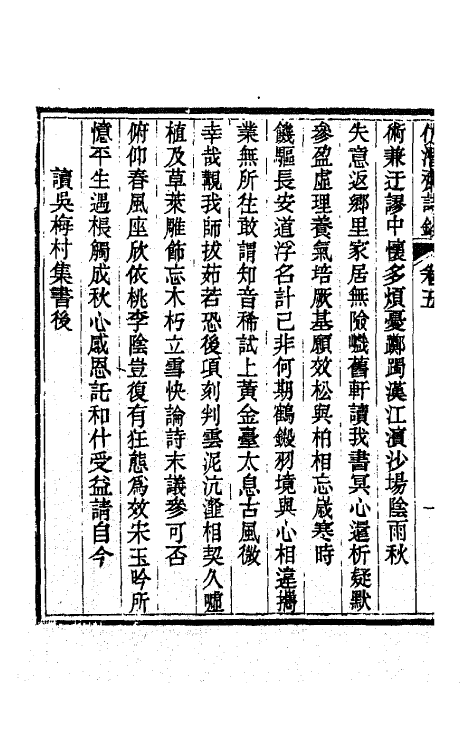 齋詩鈔 卷五 一
術兼迂謬中懷多煩憂躑躅漢江濱沙場陰雨秋
失意返鄉里家居無險巇舊軒讀我書冥心還析疑默
參盈虛理養氣培厥基願效松與柏相忘歲寒時
饑驅長安道浮名計已非何期鶴鎩羽境與心相違攜
業無所往敢謂知音稀試上黃金臺太息古風微
幸哉觀我師拔茹若恐後頃刻判雲泥沆瀣相契久噓
植及草萊雕飾忘木朽立雪快論詩末議參可否
俯仰春風座欣依桃李陰豈復有狂態為效宋玉吟所
憶平生遇棖觸成秋心感恩託和什受益請自今
讀吳梅村集書後